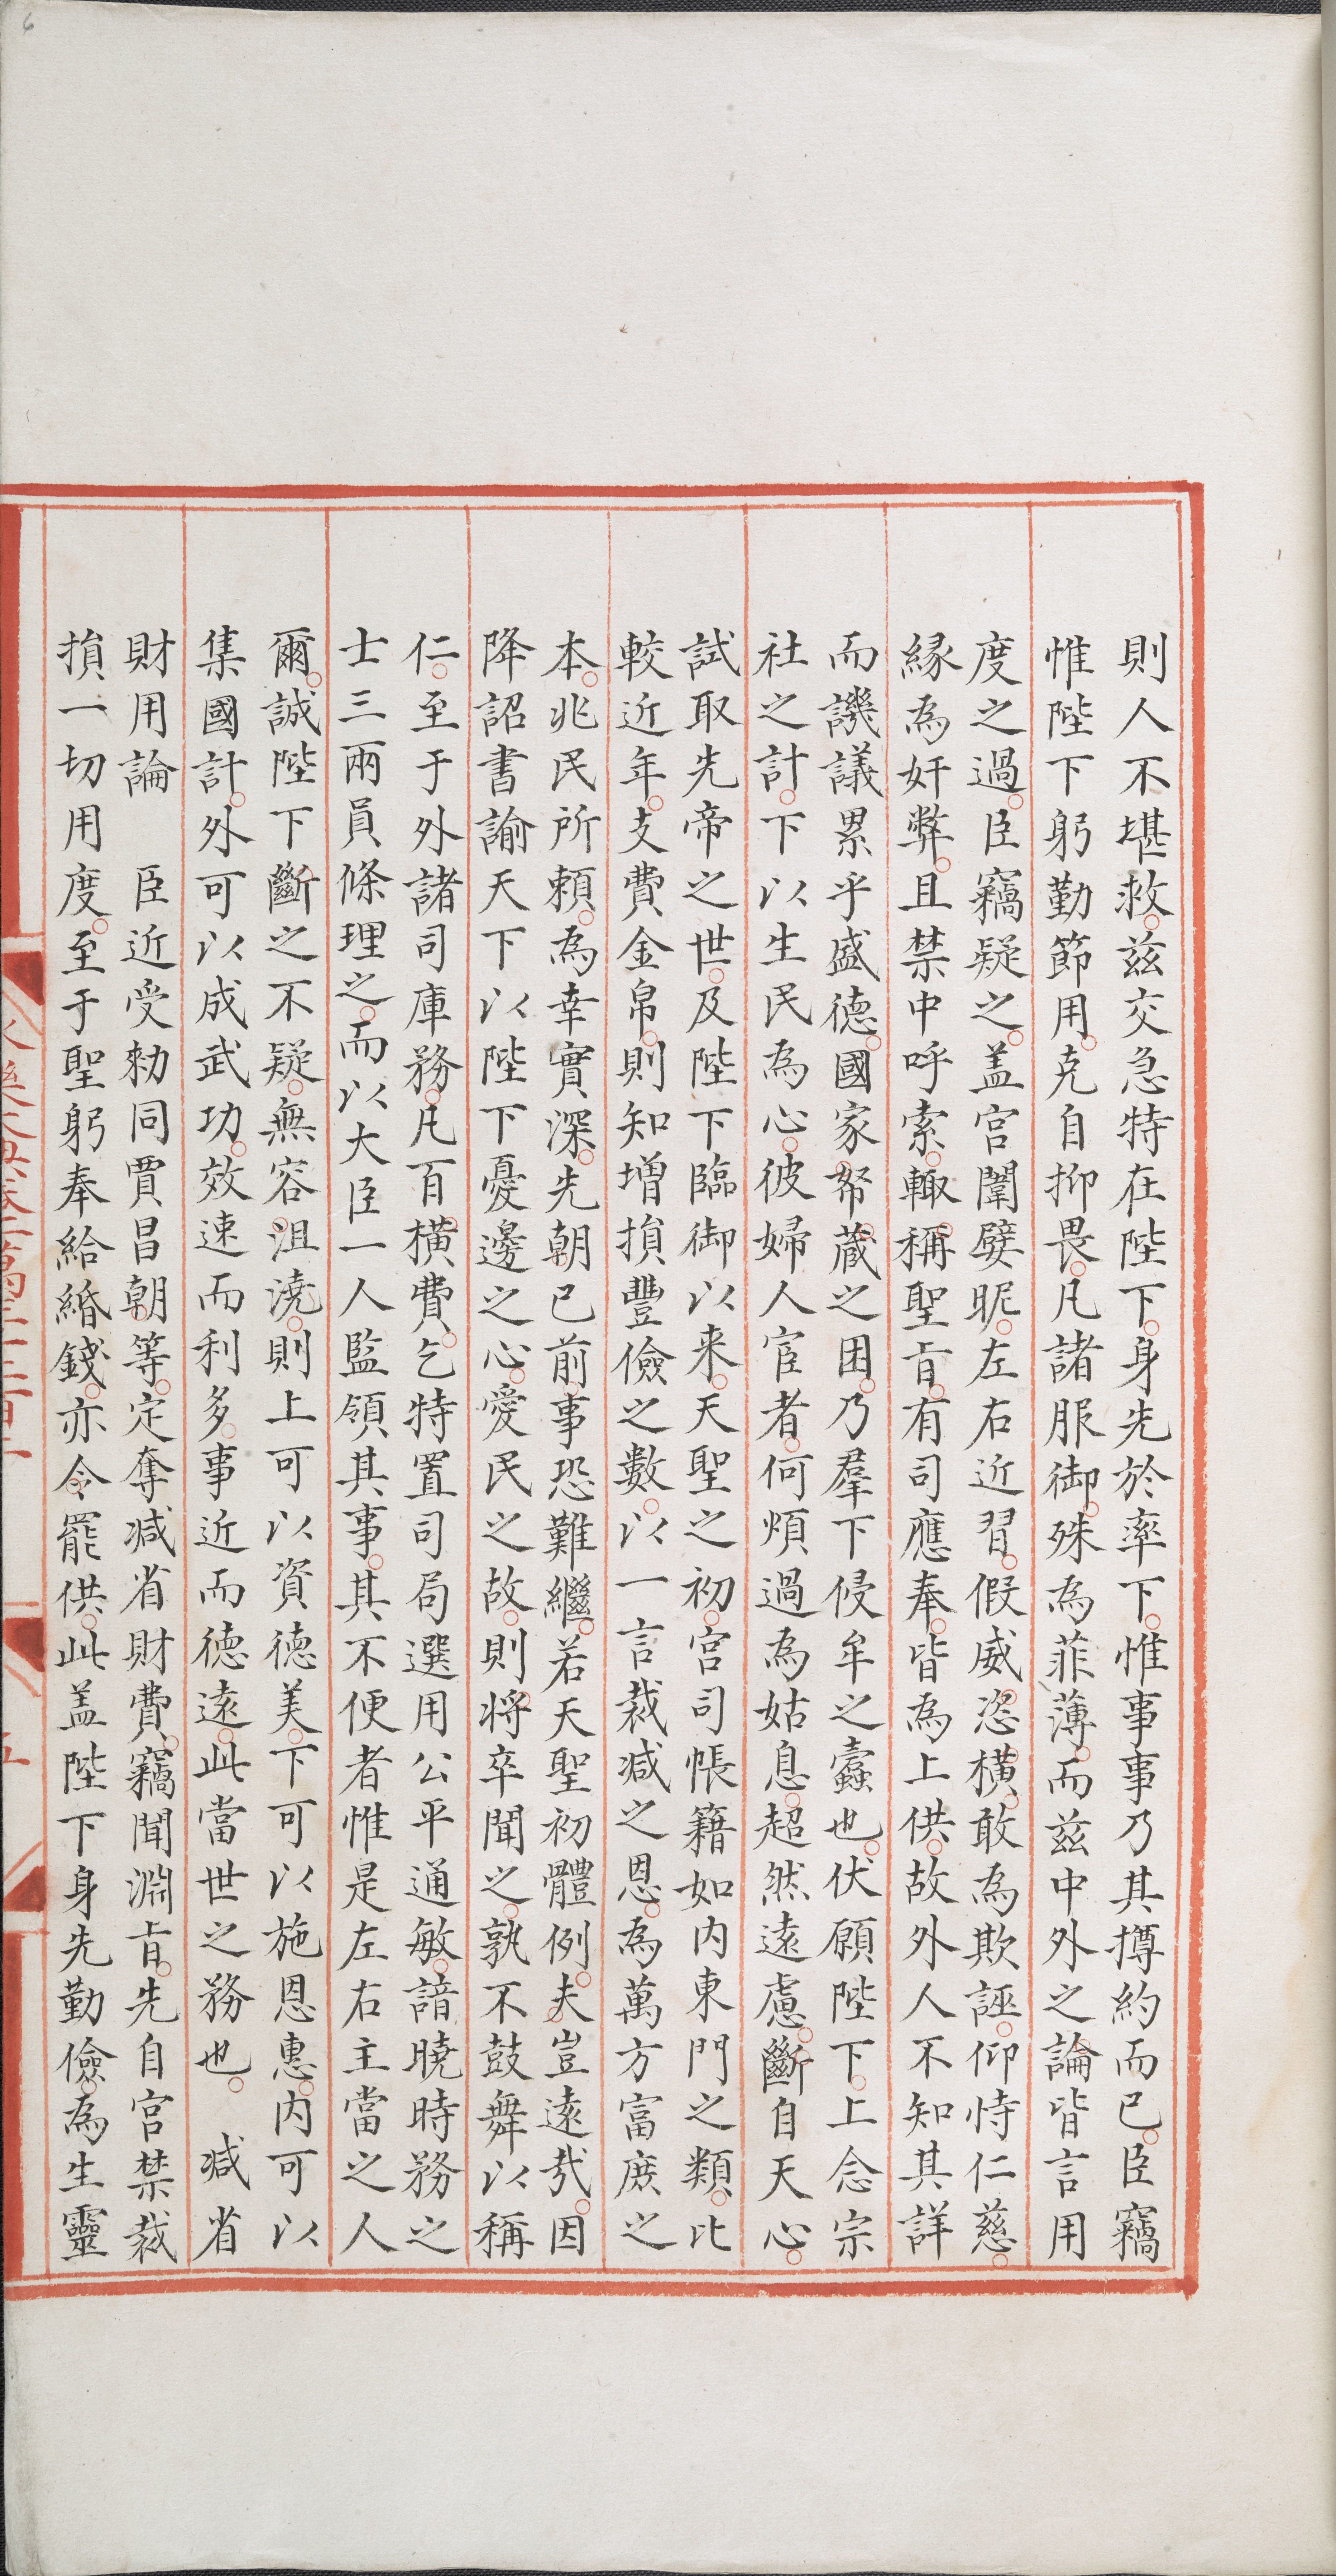 則人不堪救兹交急特在陛下身先於率下惟事事乃其撙約而已臣竊
惟陛下躬勤節用克自抑畏凡諸服御殊為菲薄而兹中外之論皆言用
度之過臣竊疑之盖宫闈嬖昵左右近習假威恣横敢為欺誣仰恃仁慈
緣為奸弊且禁中呼索輙稱聖旨有司應奉皆為上供故外人不知其詳
而譏議累乎盛德國家帑藏之困乃羣下侵牟之蠹也伏願陛下上念宗
社之計下以生民為心彼婦人宦者何煩過為姑息超然遠慮斷自天心
試取先帝之世及陛下臨御以来天聖之初宫司帳籍如内東門之類比
較近年支費金帛則知增損豐儉之數以一言裁減之恩為萬方富庶之
本兆民所賴為幸實深先朝已前事恐難繼若天聖初體例夫豈遠哉因
降詔書諭天下以陛下憂邊之心愛民之故則将卒聞之孰不鼓舞以稱
仁至于外諸司庫務凡百横費乞特置司局選用公平通敏諳曉時務之
士三兩員條理之而以大臣一人監領其事其不便者惟是左右主當之人
爾誠陛下斷之不疑無容沮澆則上可以資德美下可以施恩惠内可以
集國計外可以成武功效速而利多事近而德遠此當世之務也 減省
財用論 臣近受勑同賈昌朝等定奪減省財費竊聞淵旨先自宫禁裁
損一切用度至于聖躬奉給緡錢亦令罷供此盖陛下身先勤儉為生靈
五
6